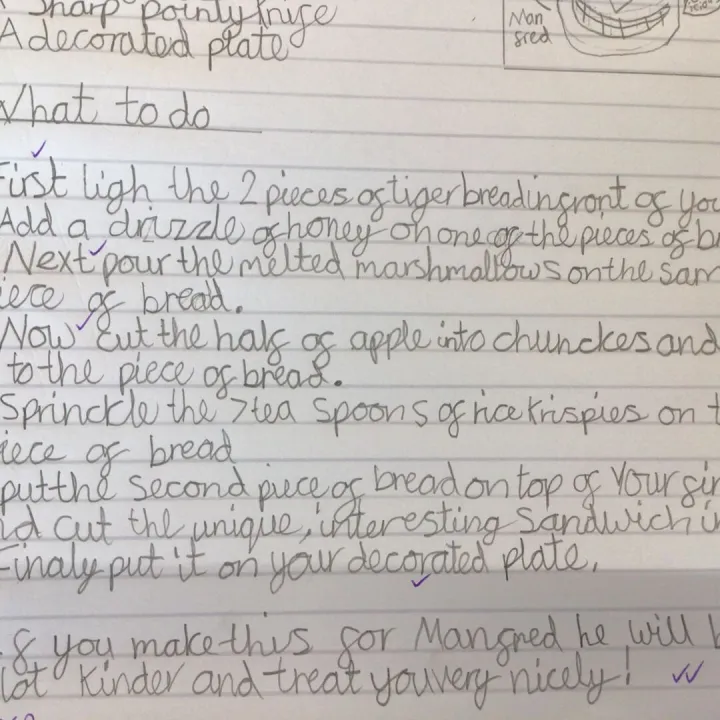 Sharp pointy knife
A decorated plate
Man
gred
What to do
First ligh the 2 pieces of tiger bread infront of you
Add a drizzle of honey on one of the pieces of b
Next pour the melted marshmallows on the sam
iece of bread.
Now cut the half of apple into chunckes and
to the piece of bread.
Sprinckle the 7 tea spoons of rice krispies on t
iece of bread
put the second piece of bread on top of your fir
d cut the unique, interesting sandwich i
Finaly put it on your decorated plate.
If you make this for Mangred he will b
lot kinder and treat you very nicely!